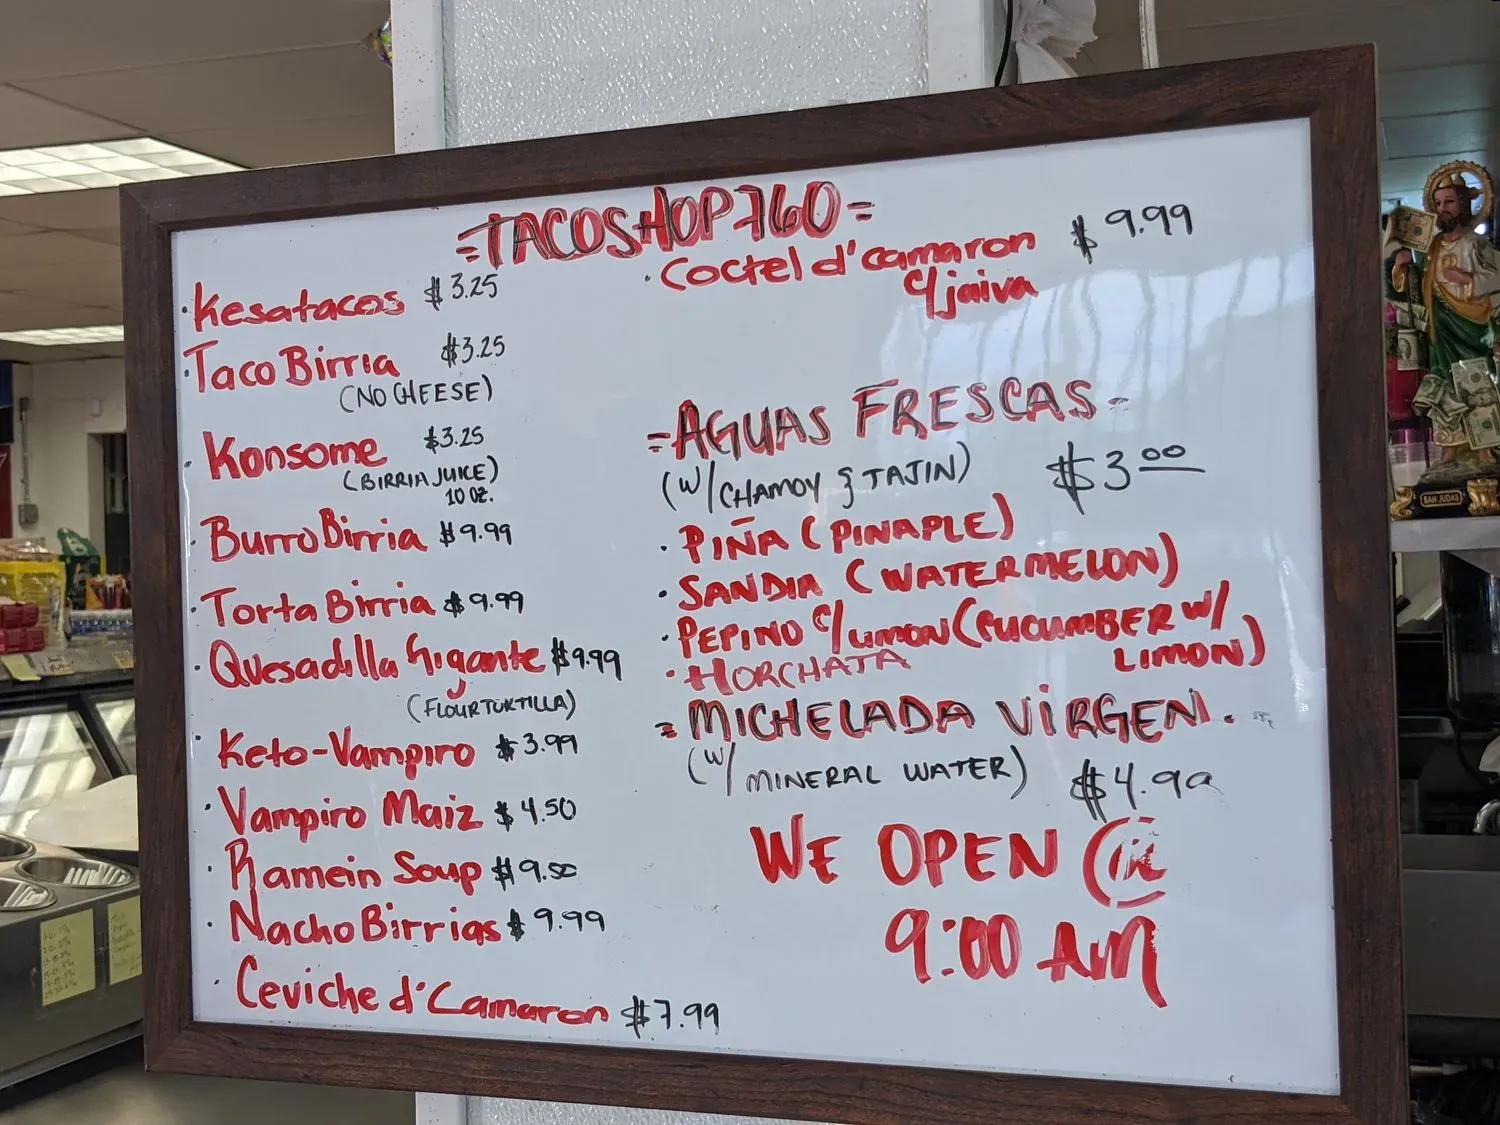 =TACOSHOP760=
· Kesatacos $3.25
· Taco Birria $3.25
(NO CHEESE)
· Konsome $3.25
(BIRRIA JUICE)
10 OZ.
· Burro Birria $9.99
· Torta Birria $9.99
· Quesadilla Gigante $9.99
(FLOUR TORTILLA)
· Keto-Vampiro $3.99
· Vampiro Maiz $4.50
· Ramein Soup $9.50
· Nacho Birrias $9.99
· Ceviche d'Camaron $7.99
· Coctel d'camaron $9.99
c/jaiva
=AGUAS FRESCAS=
(W/CHAMOY & TAJIN) $3.00
· PIÑA (PINAPLE)
· SANDIA (WATERMELON)
· PEPINO c/LIMON (CUCUMBER W/
LIMON)
· HORCHATA
= MICHELADA VIRGEN.
(W/ MINERAL WATER) $4.99
WE OPEN @
9:00 AM
SAN JUDAS